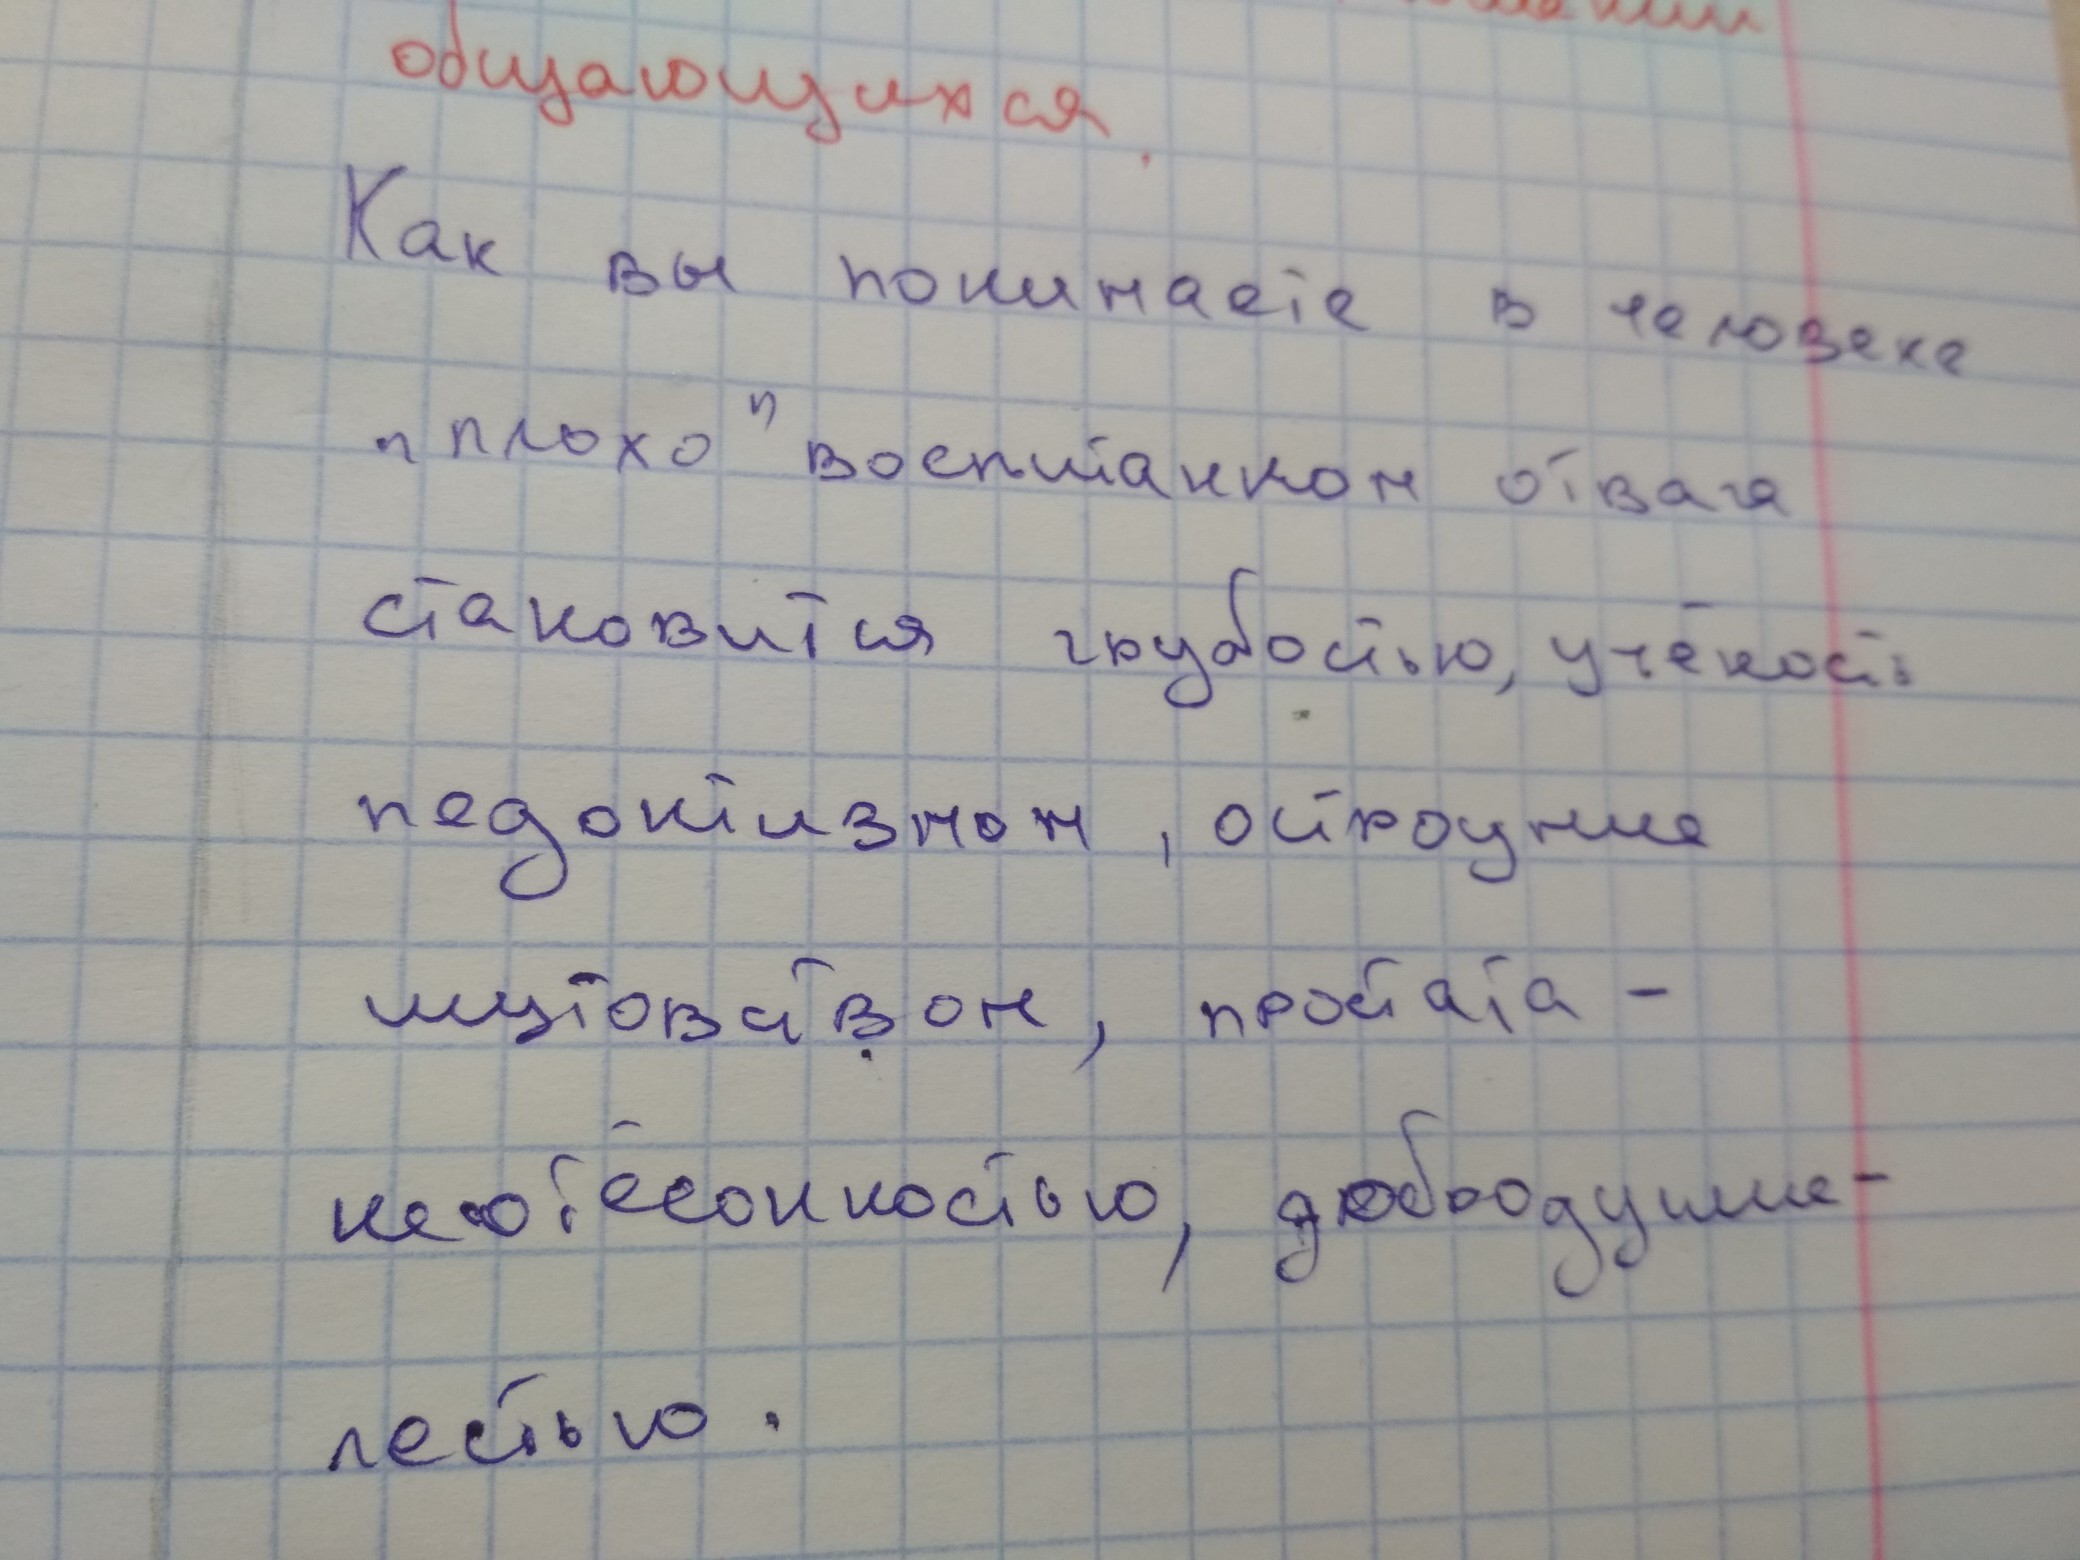 общающихся.
Как вы понимаете в человеке
"плохо" воспитанном отвага
становится грубостью, учёность
педонтизмом, остроумие
шутовством, простата -
неотёсонностью, добродушие -
лестью.